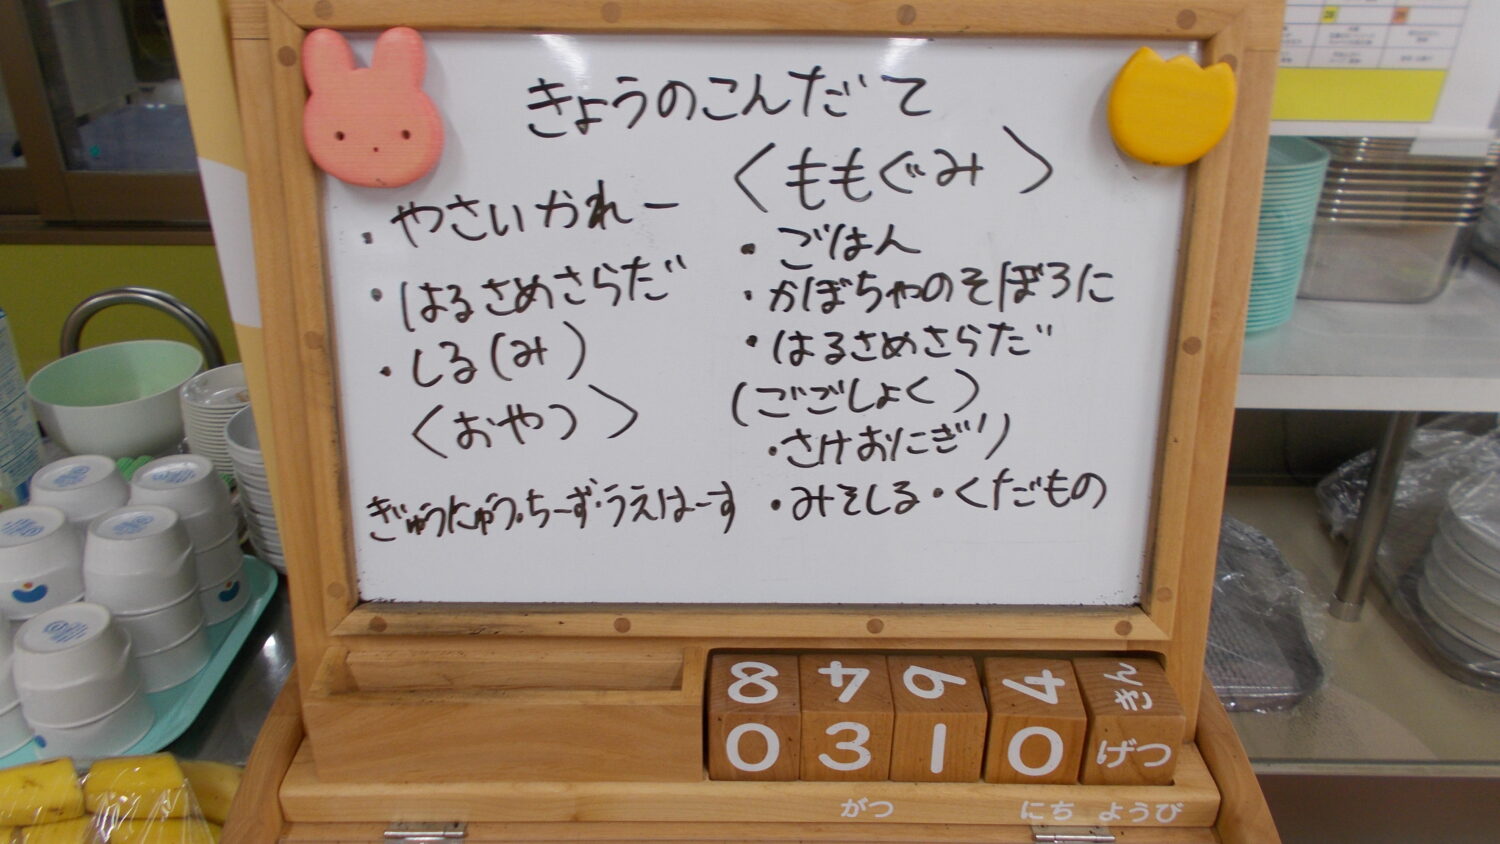 きょうのこんだて
・やさいかれー
・はるさめさらだ
・しる(み)
〈おやつ〉
ぎゅうにゅう・ちーず・うえはーす
〈ももぐみ〉
・ごはん
・かぼちゃのそぼろに
・はるさめさらだ
(ごごしょく)
・さけおにぎり
・みそしる・くだもの
8 4 6 4 きん
0 3 1 0 げつ
がつ にち ようび